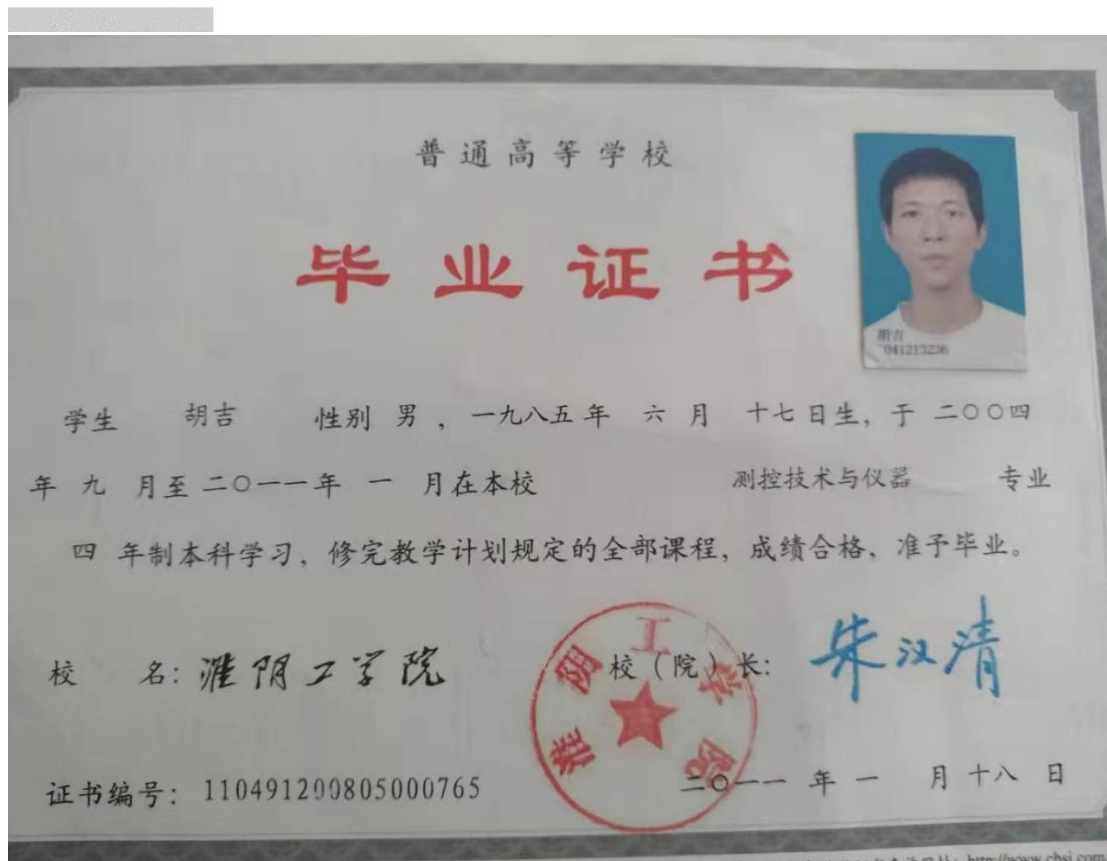 普通高等学校
毕业证书
胡吉
041213236
学生 胡吉 性别 男 ，一九八五年 六 月 十七日生，于 二〇〇四
年 九 月至 二〇一一年 一 月在本校 测控技术与仪器 专业
四 年制本科学习，修完教学计划规定的全部课程，成绩合格，准予毕业。
校 名：淮阴工学院 校（院）长：朱汉清
淮阴工学院
证书编号：110491200805000765 二〇一一 年 一 月 十八 日
http://www.chsi.com